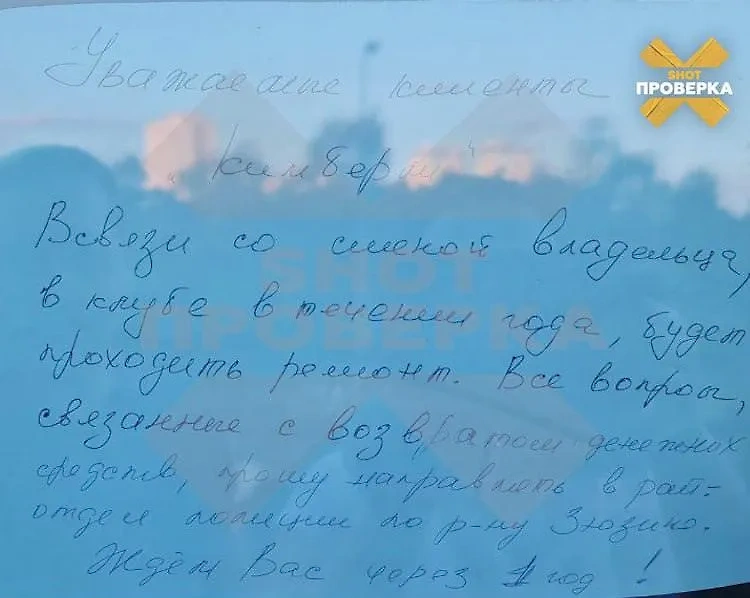 SHOT
ПРОВЕРКА
Уважаемые клиенты
"Кимберли"
Всвязи со сменой владельца,
в клубе в течении года, будет
проходить ремонт. Все вопросы,
связанные с возвратом денежных
средств, прошу направлять в рай-
отдел полиции по р-ну Зюзино.
Ждём Вас через 1 год !
SHOT
ПРОВЕРКА